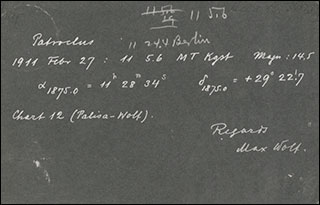 11 5.6
11 5.6
11 24.4 Berlin
Patroclus
1911 Febr 27 : 11 5.6 MT Kgst Magn: 14,5
α 1875.0 = 11h 28m 34s δ 1875.0 = +29° 22.'7
Chart 12 (Palisa-Wolf).
Regards
Max Wolf.